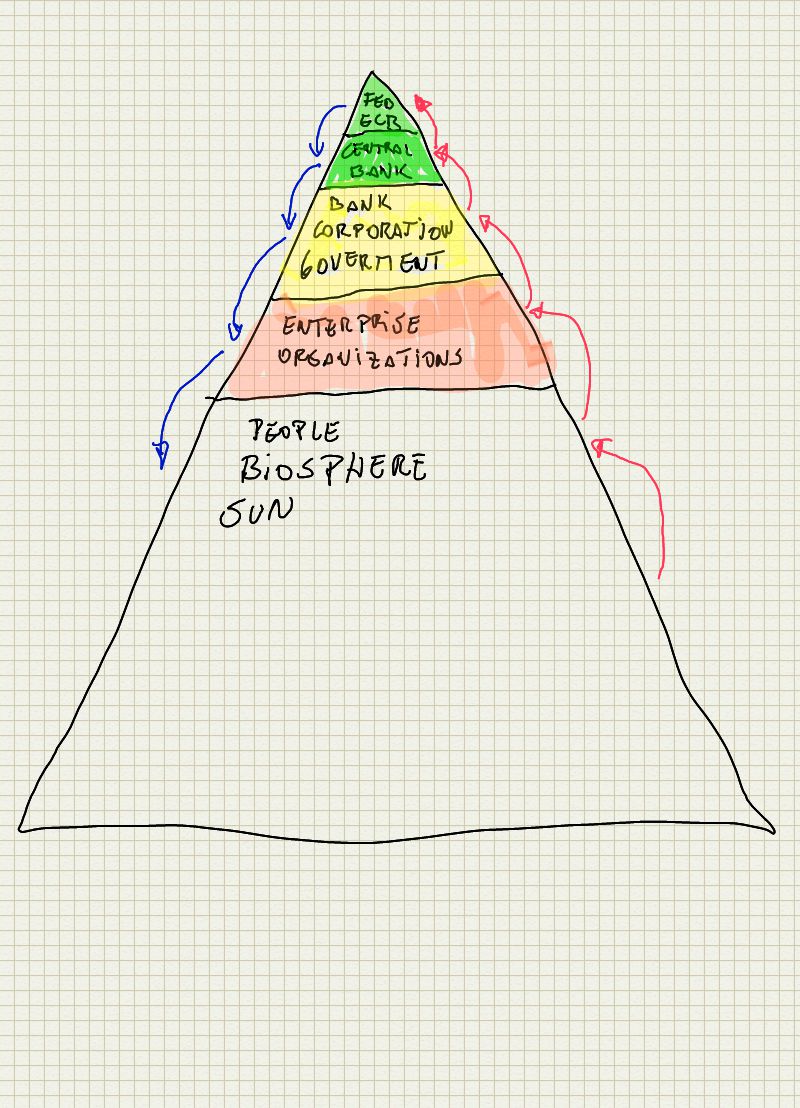 FED
ECB
CENTRAL
BANK
BANK
CORPORATION
GOVERMENT
ENTERPRISE
ORGANIZATIONS
PEOPLE
BIOSPHERE
SUN